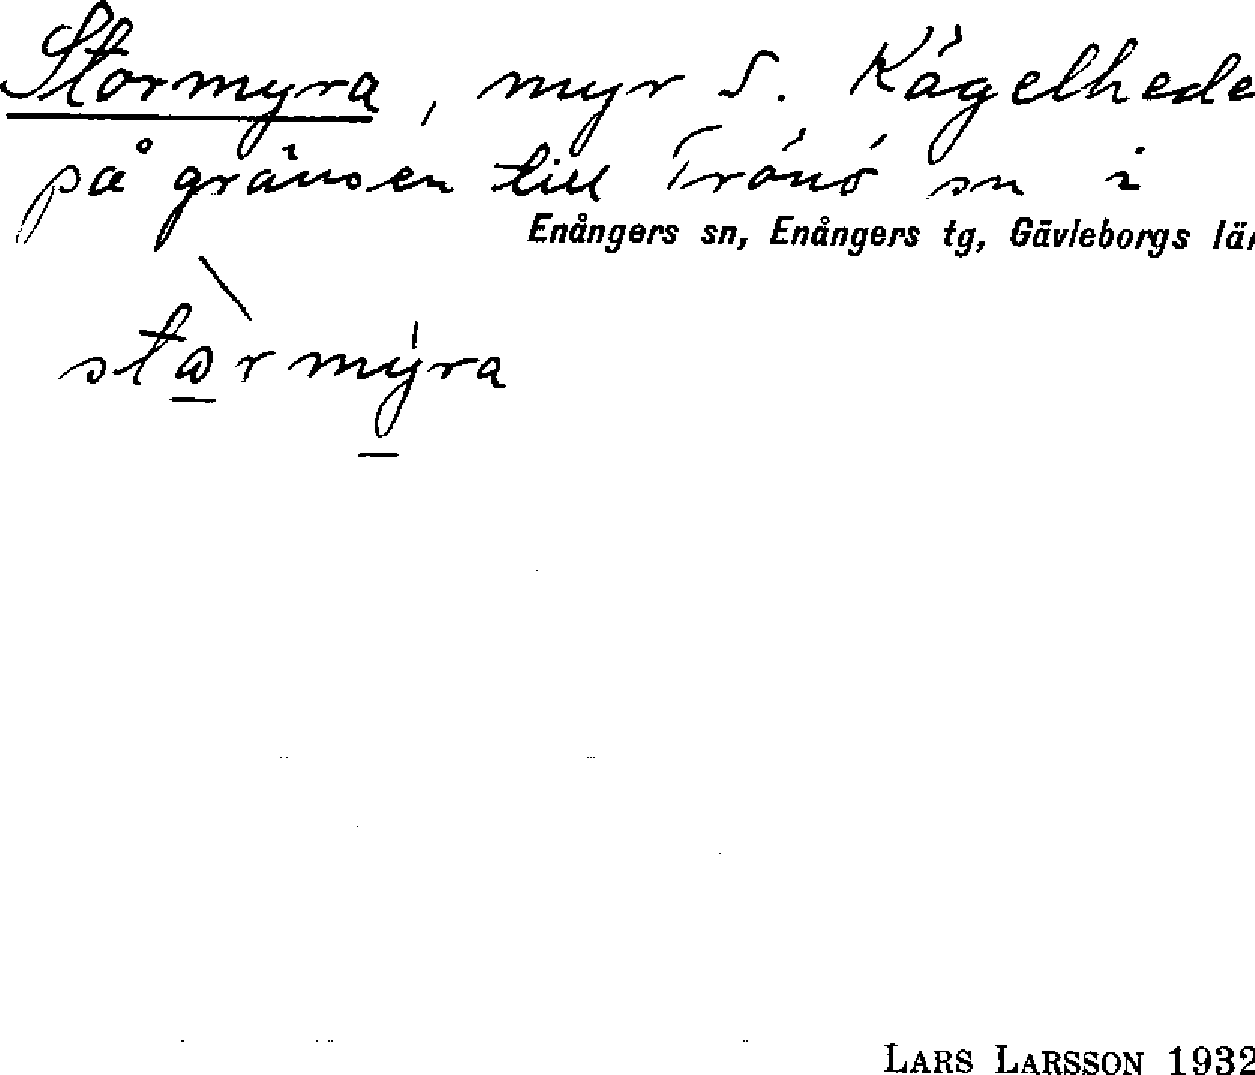 Stormyra, myr S. Kägelhede
på gränsen till Trönö sn i
Enångers sn, Enångers tg, Gävleborgs län
stormyra
LARS LARSSON 1932